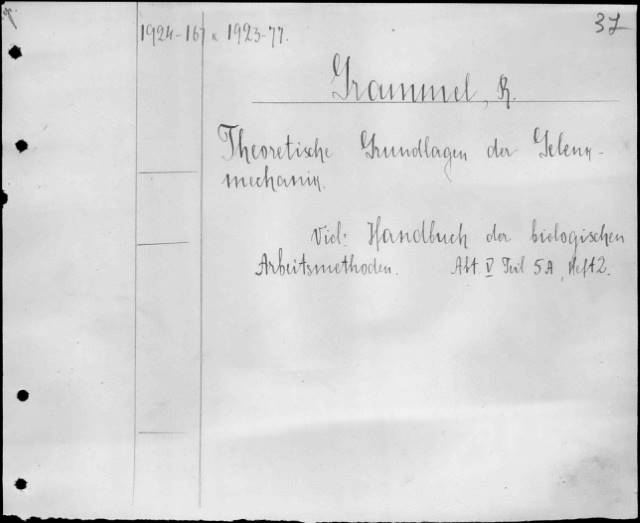 37
1924-167 u 1923-77.
Grammel, R.
Theoretische Grundlagen der Gelenk-
mechanik.
Vid: Handbuch der biologischen
Arbeitsmethoden. Abt. V Teil 5A, Heft 2.